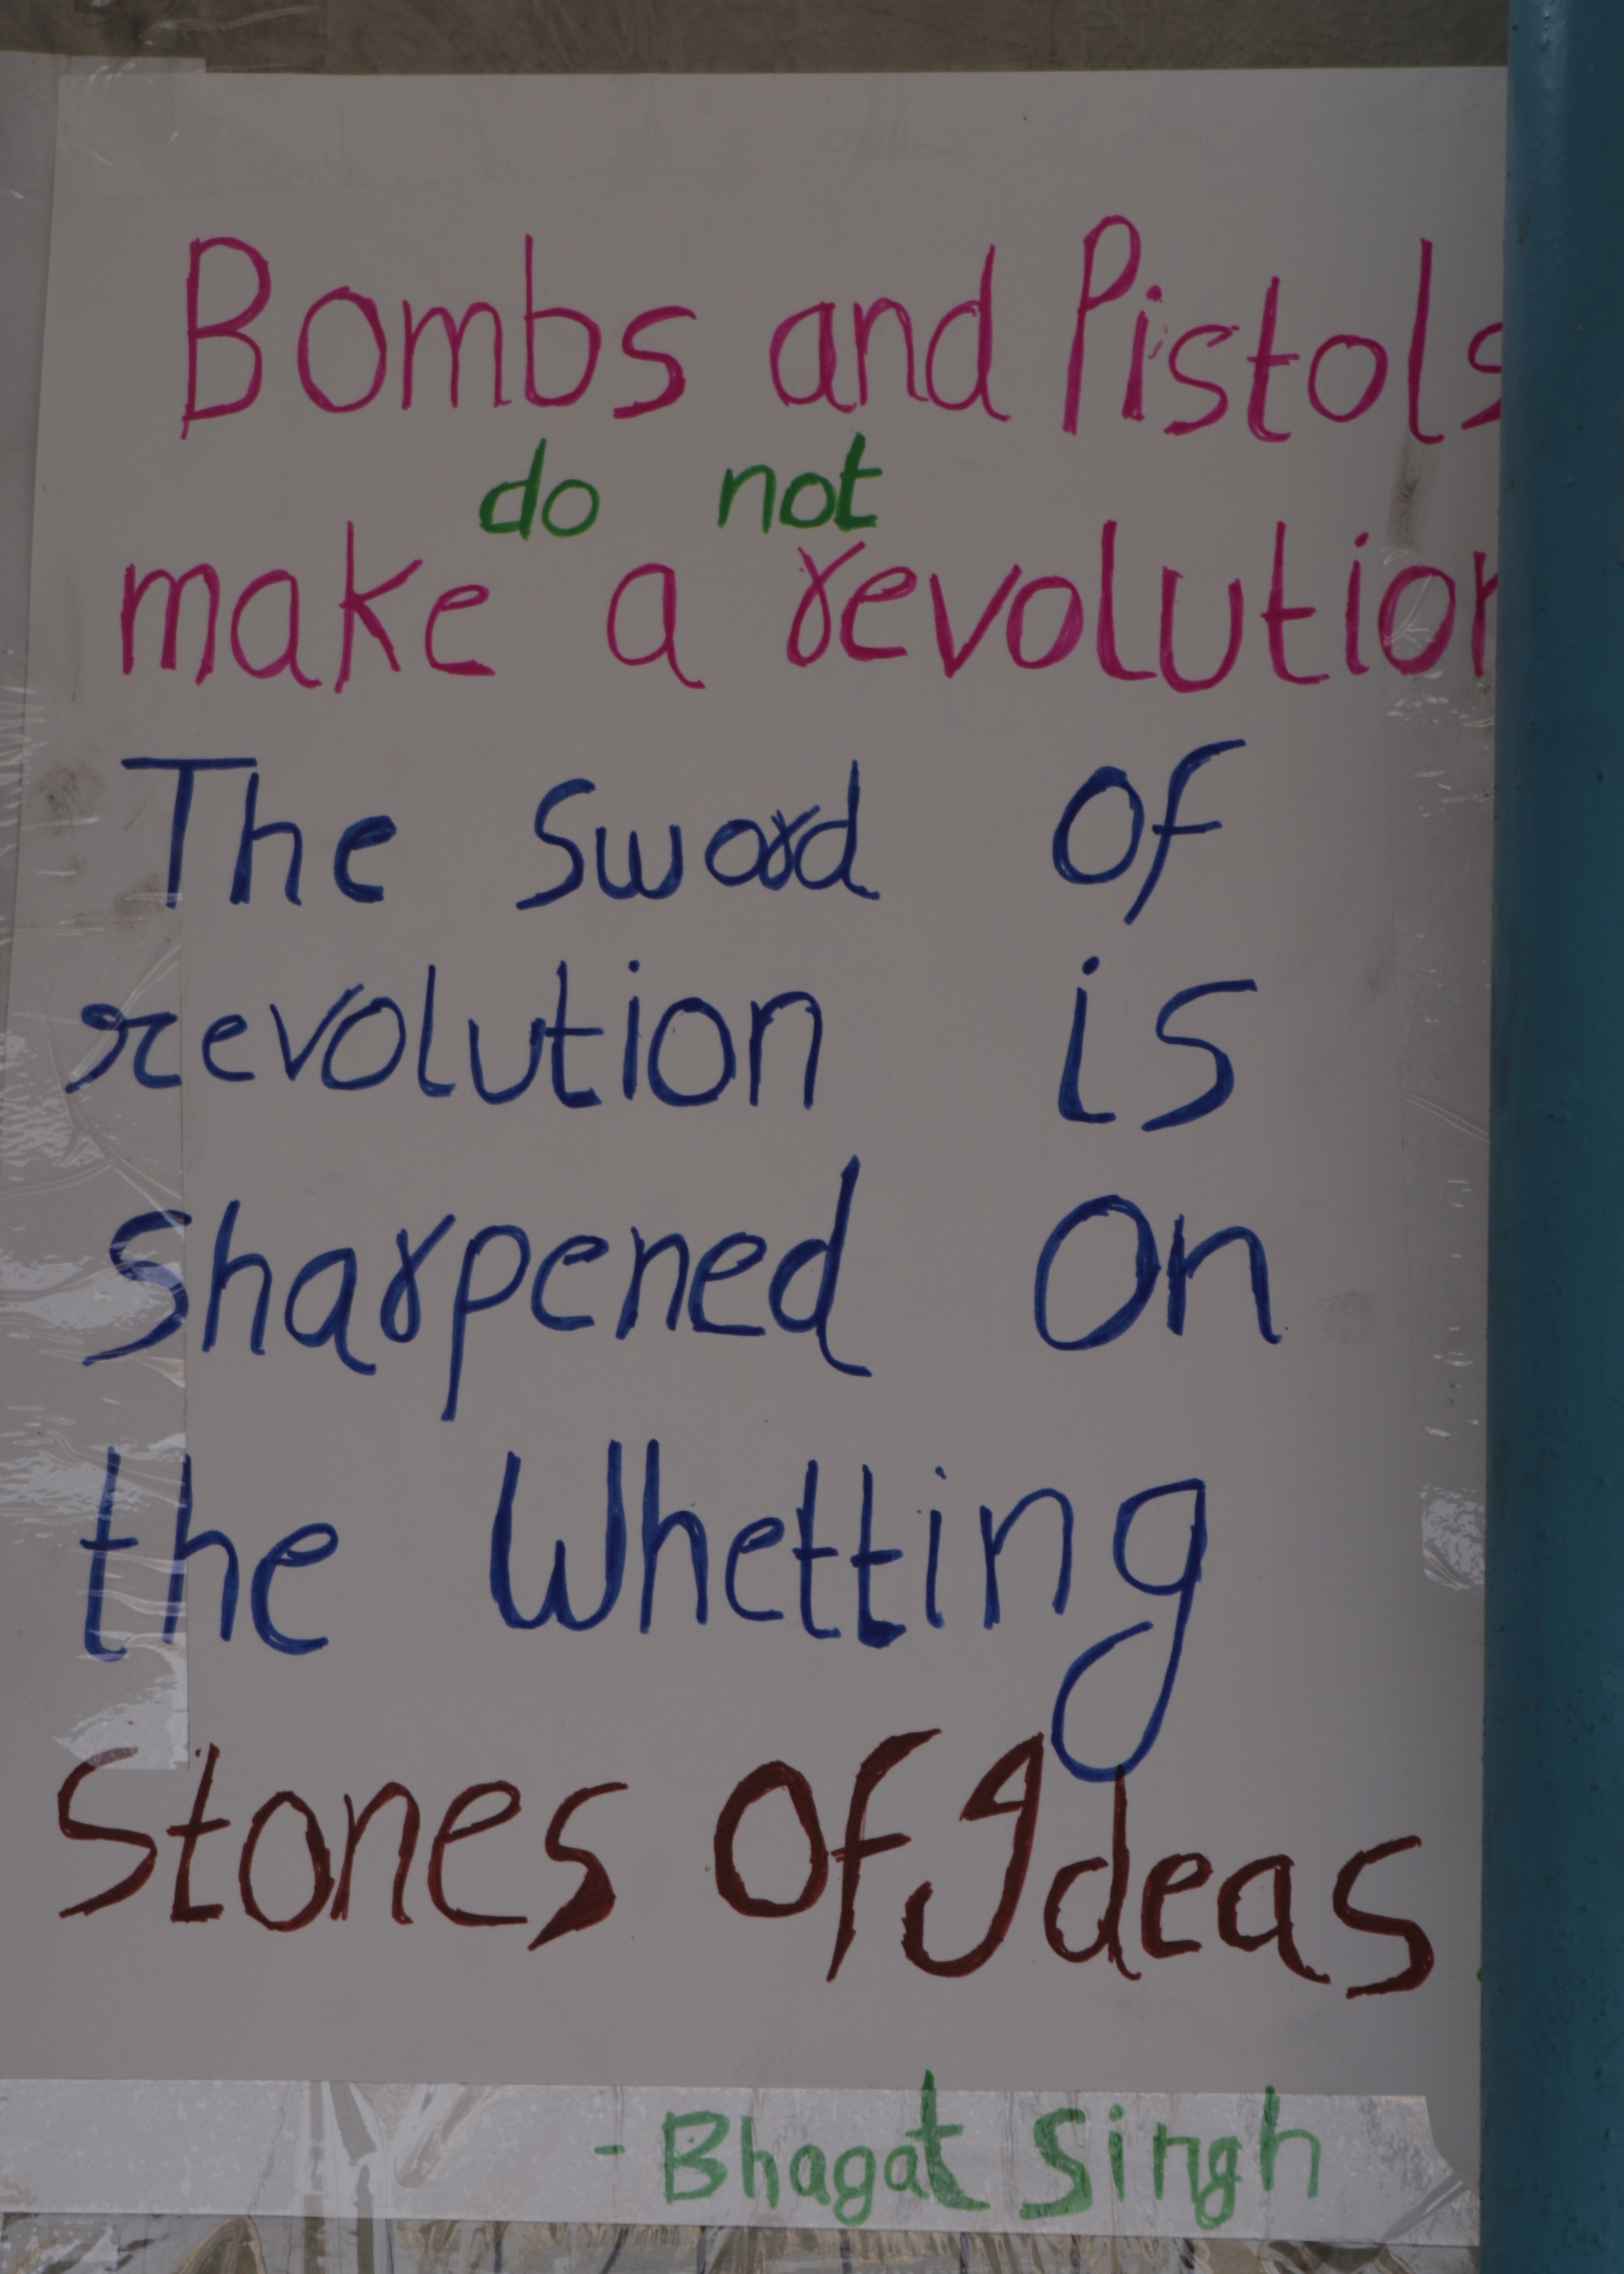 Bombs and Pistols
do not
make a revolution
The Sword Of
revolution is
Sharpened On
the Whetting
Stones Of Ideas
- Bhagat Singh